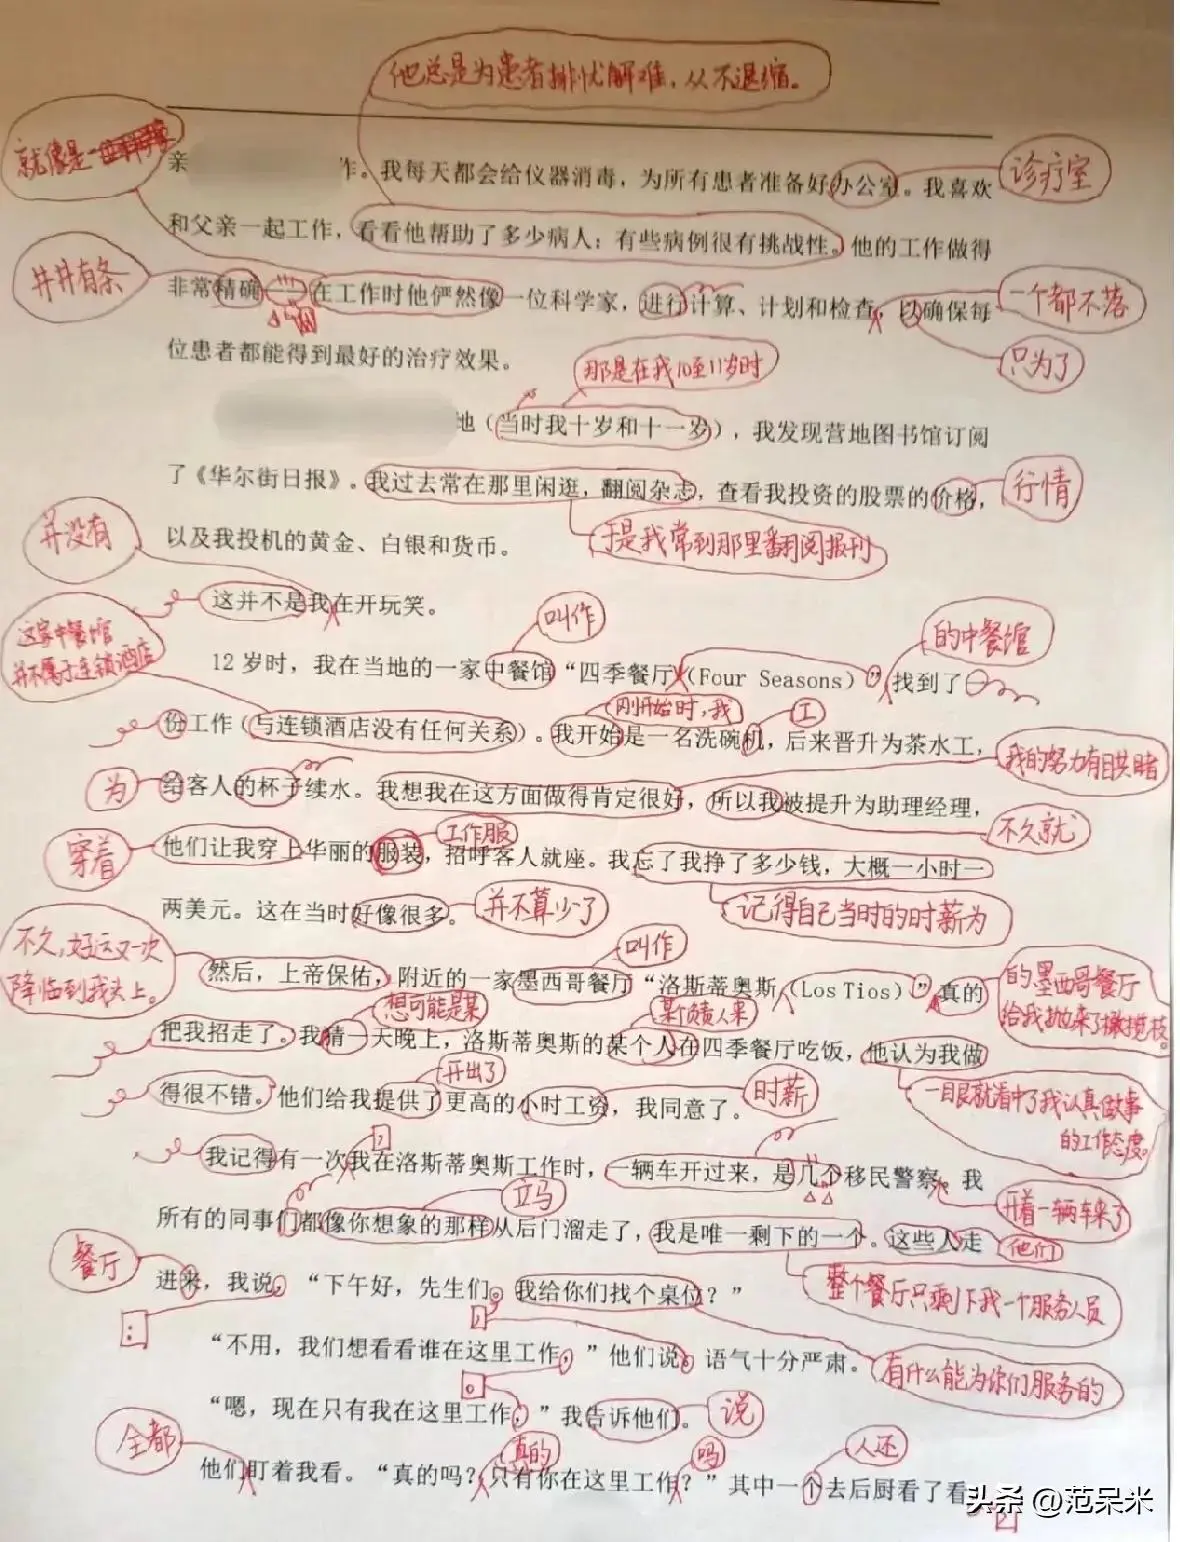 他总是为患者排忧解难，从不退缩。
就像是一
亲 作。我每天都会给仪器消毒，为所有患者准备好办公室。我喜欢
诊疗室
和父亲一起工作，看看他帮助了多少病人；有些病例很有挑战性。他的工作做得
井井有条
非常精确——在工作时他俨然像一位科学家，进行计算、计划和检查，以确保每
一个都不落
位患者都能得到最好的治疗效果。
只为了
那是在我10至11岁时
地（当时我十岁和十一岁），我发现营地图书馆订阅
了《华尔街日报》。我过去常在那里闲逛，翻阅杂志，查看我投资的股票的价格，
行情
以及我投机的黄金、白银和货币。
于是我常到那里翻阅报刊
并没有
这并不是我在开玩笑。
叫作
的中餐馆
这家中餐馆
并不属于连锁酒店
12 岁时，我在当地的一家中餐馆“四季餐厅（Four Seasons）”找到了一
刚开始时，我
工
份工作（与连锁酒店没有任何关系）。我开始是一名洗碗机，后来晋升为茶水工，
我的努力有目共睹
为
给客人的杯子续水。我想我在这方面做得肯定很好，所以我被提升为助理经理，
不久就
穿着
工作服
他们让我穿上华丽的服装，招呼客人就座。我忘了我挣了多少钱，大概一小时一
两美元。这在当时好像很多。
并不算少了
记得自己当时的时薪为
不久，好运又一次
降临到我头上。
叫作
然后，上帝保佑，附近的一家墨西哥餐厅“洛斯蒂奥斯（Los Tios）”真的
的墨西哥餐厅
给我抛来了橄榄枝。
想可能是某
某个负责人来
把我招走了。我猜一天晚上，洛斯蒂奥斯的某个人在四季餐厅吃饭，他认为我做
开出了
得很不错。他们给我提供了更高的小时工资，我同意了。
时薪
一眼就看中了我认真做事
的工作态度。
我记得有一次我在洛斯蒂奥斯工作时，一辆车开过来，是几个移民警察。我
立马
开着一辆车来了
所有的同事们都像你想象的那样从后门溜走了，我是唯一剩下的一个。这些人走
他们
餐厅
进来，我说。“下午好，先生们。我给你们找个桌位？”
整个餐厅只剩下我一个服务人员
“不用，我们想看看谁在这里工作，”他们说。语气十分严肃。
有什么能为你们服务的
“嗯，现在只有我在这里工作，”我告诉他们。
说
全都
真的
吗
人还
他们盯着我看。“真的吗？只有你在这里工作？”其中一个去后厨看了看
头条 @范呆米